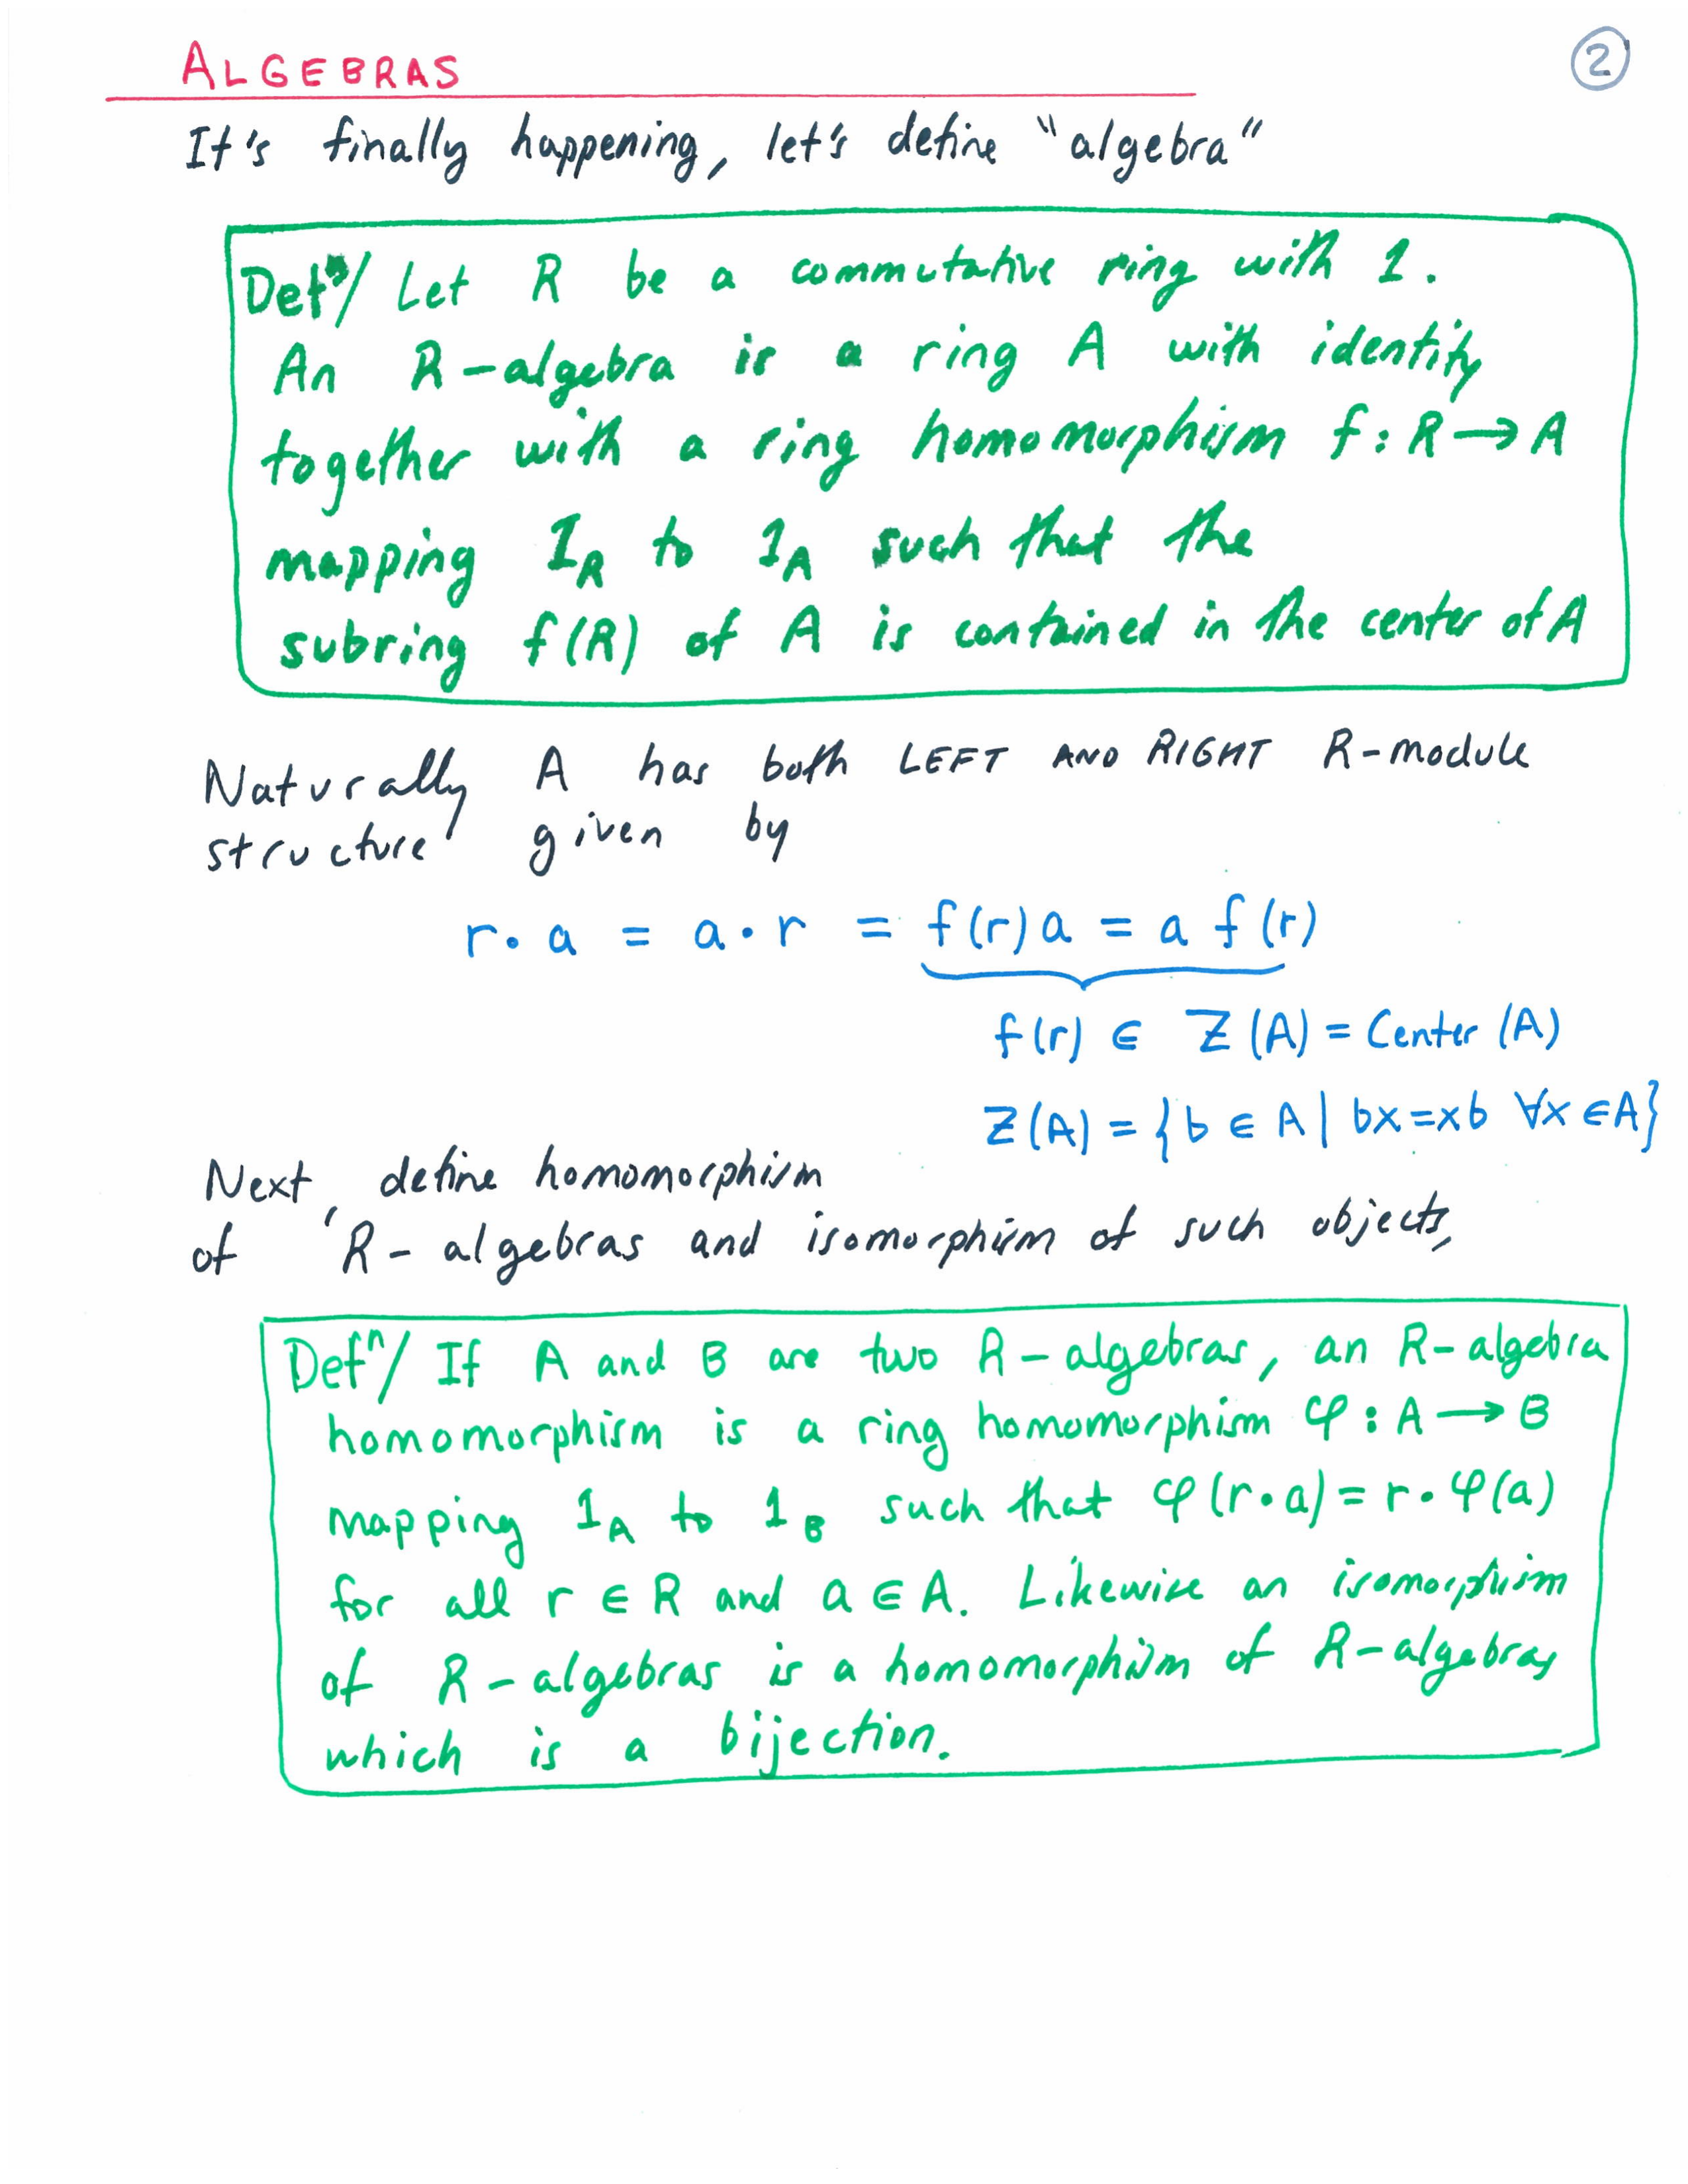 ALGEBRAS
2
It's finally happening, let's define "algebra"
Defⁿ/ Let R be a commutative ring with 1.
An R-algebra is a ring A with identity
together with a ring homomorphism f : R → A
mapping 1_R to 1_A such that the
subring f(R) of A is contained in the center of A
Naturally A has both LEFT AND RIGHT R-module
structure given by
r • a = a • r = f(r) a = a f(r)
f(r) ∈ Z(A) = Center (A)
Z(A) = {b ∈ A | bx = xb ∀x ∈ A}
Next, define homomorphism
of R-algebras and isomorphism of such objects,
Defⁿ/ If A and B are two R-algebras, an R-algebra
homomorphism is a ring homomorphism φ : A → B
mapping 1_A to 1_B such that φ(r•a) = r•φ(a)
for all r ∈ R and a ∈ A. Likewise an isomorphism
of R-algebras is a homomorphism of R-algebras
which is a bijection.